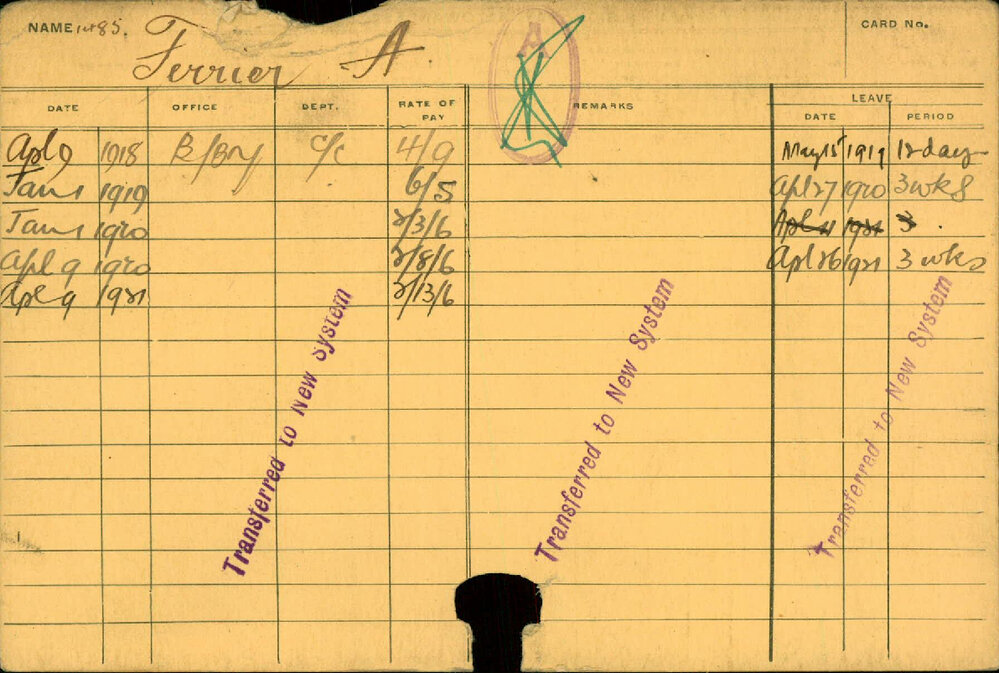 NAME 1485. CARD No.
Ferrier A.
A
DATE OFFICE DEPT. RATE OF PAY REMARKS LEAVE
DATE PERIOD
Apl 9 1918 B/Bny C/c 4/9 May 15 1919 12 days
Jan 1 1919 6/5 Apl 27 1920 3 wks
Jan 1 1920 2/3/6 Apl 1921 3
Apl 9 1920 2/8/6 Apl 26 1921 3 wks
Apl 9 1921 2/13/6
Transferred to New System
Transferred to New System
Transferred to New System